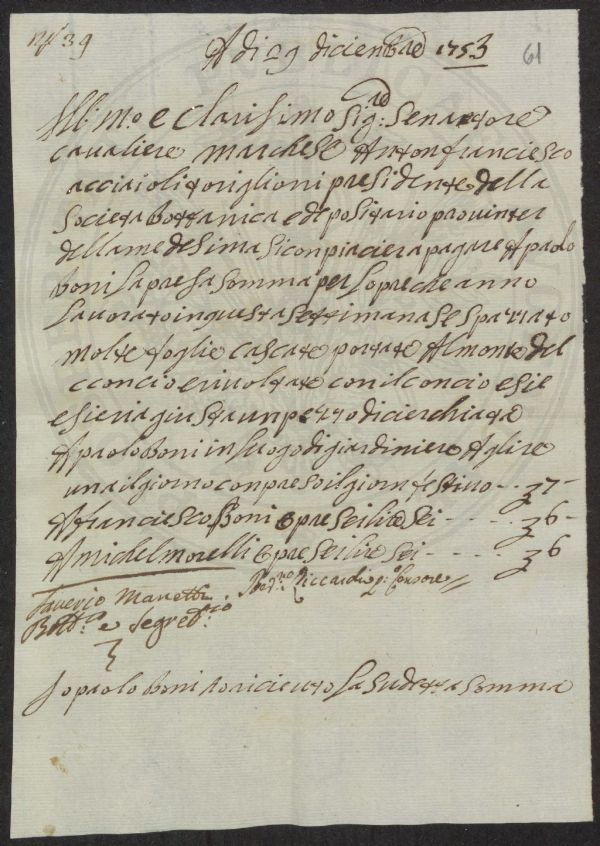 N.º 39
A di 29 dicienbre 1753
61
Ill.mo e Clarisimo Sig.re Senartore
Cavaliere Marchese Antonfranciesco
acciaioli toriglioni presidente della
Societa Bottanica e depositario provinter
della medesima Si conpiaciera pagare A paolo
Boni La presa somma per Lopre che anno
Lavorato in questa Settimana Se spazzato
molte foglie Cascate portate Al monte del
cconcio e rivoltate con il concio e sie
e sie via giusta un pezzo di cierchiate
A paolo Boni in luogo di giardiniere A glire
una il giorno conpreso il giorn festivo - - 37 -
A Franciesco Boni opre sei lire sei - - - - 36 -
A michel morelli opre sei lire sei - - - - 36
Saverio Manetti
Bott.co e Segret.rio
Ricciardi p.o Censore
Io paolo Boni o riceuto La sudetta somma